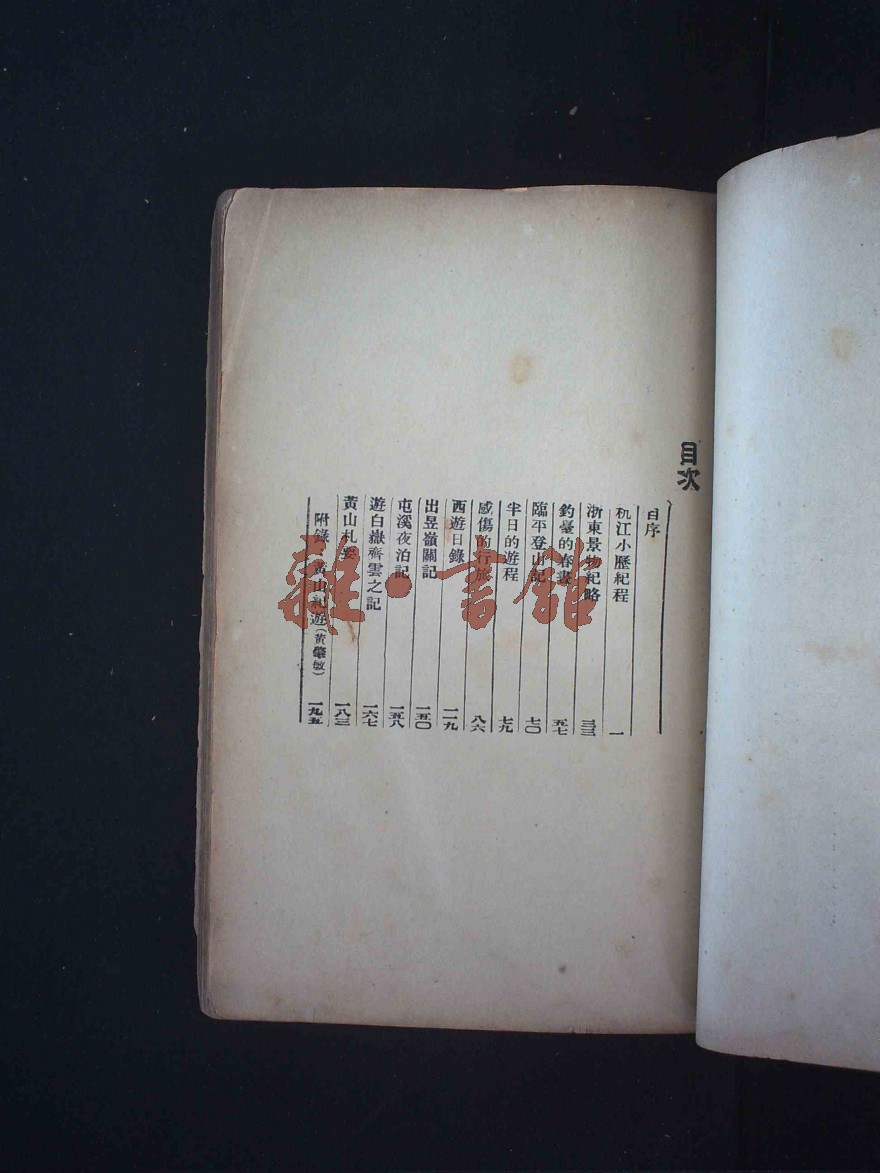 目次
自序
杭江小歷紀程 一
浙東景物紀略 三三
釣臺的春晝 五七
臨平登山記 七〇
半日的遊程 七九
感傷的行旅 八六
西遊日錄 一一九
出昱嶺關記 一五〇
屯溪夜泊記 一五八
遊白嶽齊雲之記 一六七
黃山札要 一八三
附錄 黃山紀遊(黃肇敏) 一九五
雜·書館